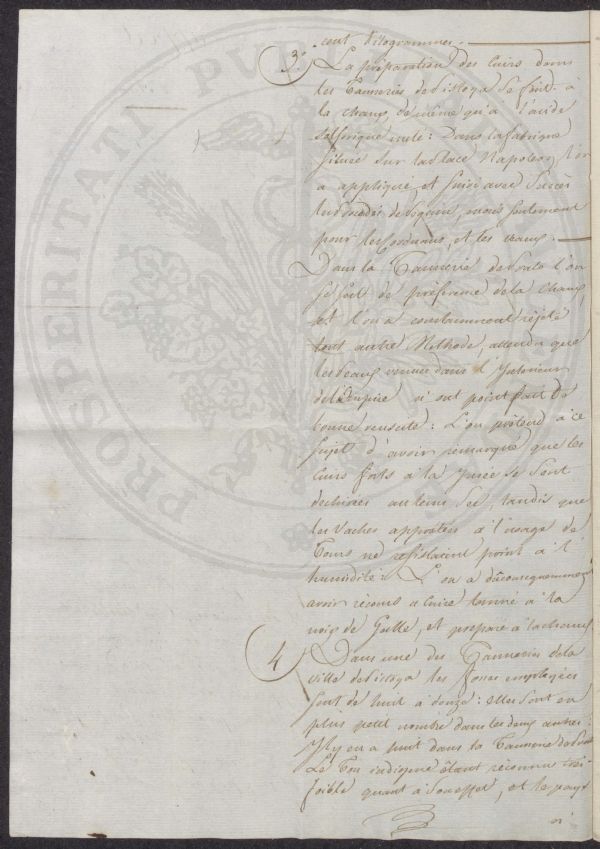 cent Kilogrammes.
3.° La préparation des Cuirs dans
les Tanneries de Pistoja se fait à
la chaux, de même qu'a l'acide
solforique mele: Dans la fabrique
située sur la Place Napoleon, l'on
a appliqué, et suivi avec succès
les procédés de Seguin, mais seulement
pour les Cordouans, et les veaux.
Dans la Tannerie de Prato l'on
se sert de préference de la chaux,
et l'on a constamment rejeté
tout autre Methode, attendu que
les Peaux venues dans l'Interieur
de l'Empire n'ont point fait de
bonne reuscite: L'on prétend à ce
sujet d'avoir remarqué que les
Cuirs forts à la Jusée se sont
dechirés au tems sec, tandis que
les Vaches apprêtées à l'usage de
Tours ne resistaient point à l'
humidité: L'on a du consequemment
avoir récours a Cuirs tanné à la
noix de Galle, et préparé à la chaux
4 Dans une des Tanneries de la
ville de Pistoja les fosses employées
sont de huit à douze: Elles sont en
plus petit nombre dans les deux autres:
Il y en a huit dans la Tannerie de Prato
Le Tan indigene étant réconnu très
foible quant à son effet, et le pays
PROSPERITATI PUBLICAE